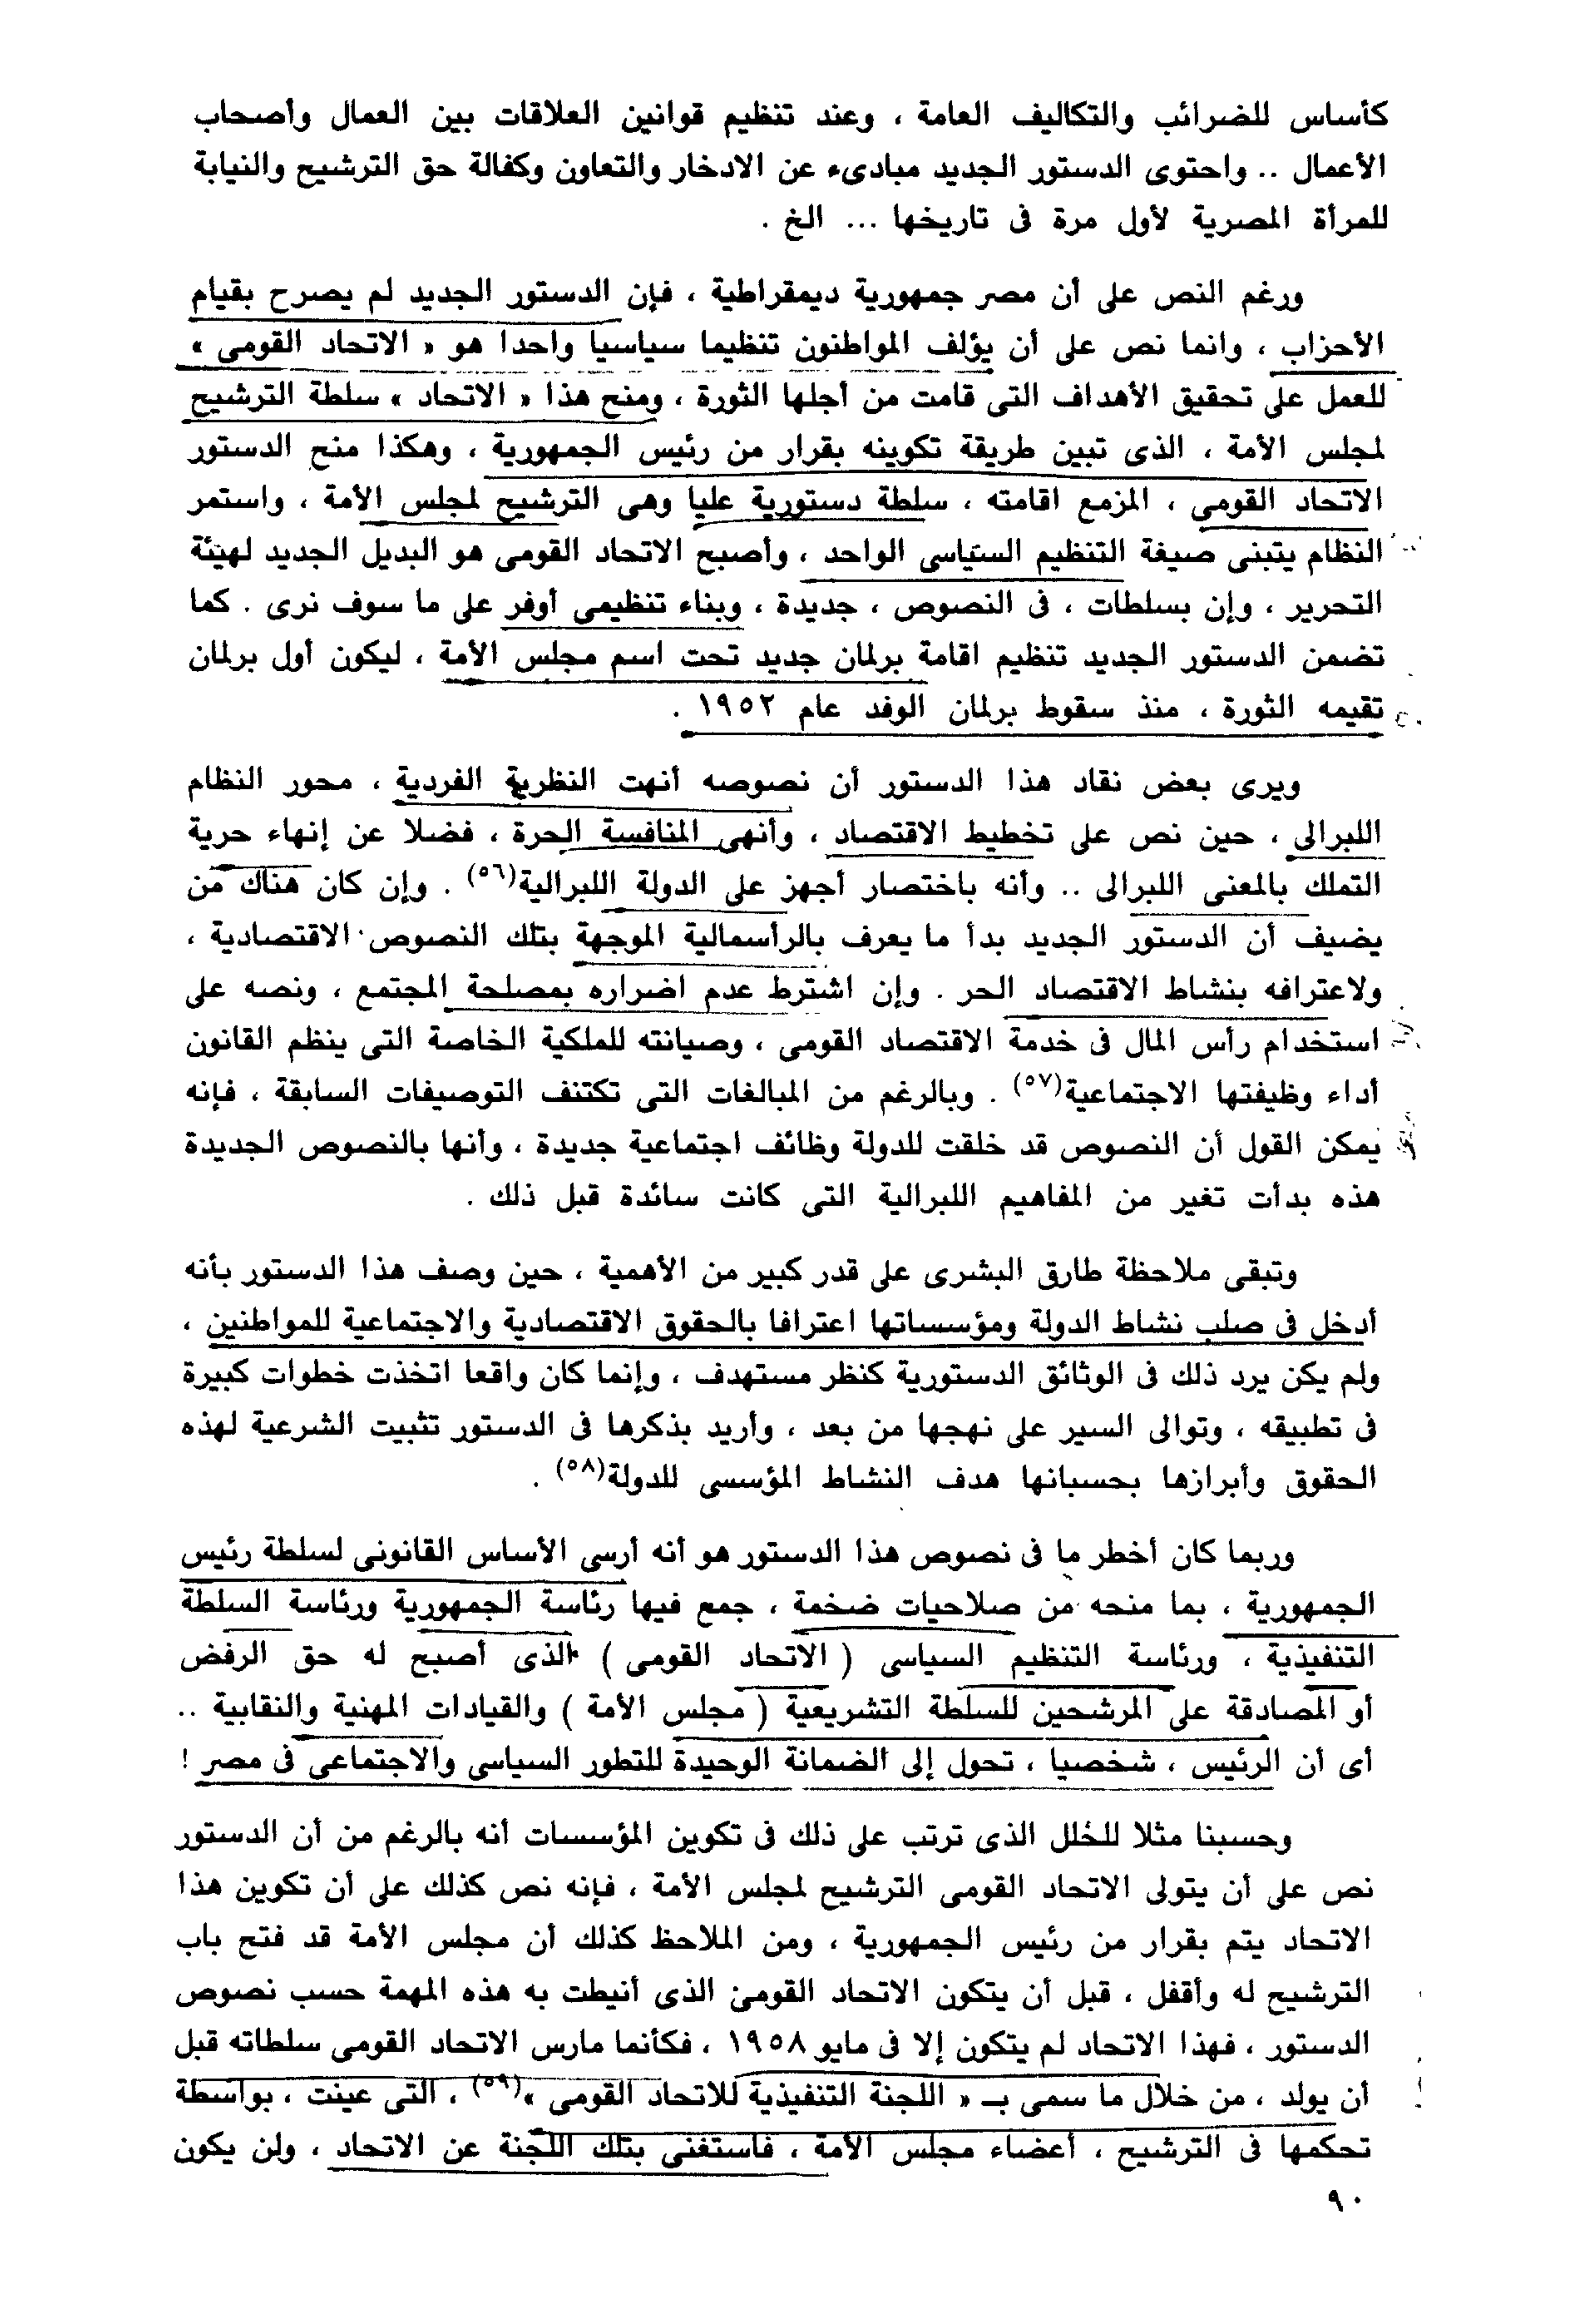 كأساس للضرائب والتكاليف العامة ، وعند تنظيم قوانين العلاقات بين العمال وأصحاب
الأعمال .. واحتوى الدستور الجديد مبادىء عن الادخار والتعاون وكفالة حق الترشيح والنيابة
للمرأة المصرية لأول مرة فى تاريخها ... الخ .
ورغم النص على أن مصر جمهورية ديمقراطية ، فإن الدستور الجديد لم يصرح بقيام
الأحزاب ، وانما نص على أن يؤلف المواطنون تنظيما سياسيا واحدا هو « الاتحاد القومى »
للعمل على تحقيق الأهداف التى قامت من أجلها الثورة ، ومنح هذا « الاتحاد » سلطة الترشيح
لمجلس الأمة ، الذى تبين طريقة تكوينه بقرار من رئيس الجمهورية ، وهكذا منح الدستور
الاتحاد القومى ، المزمع اقامته ، سلطة دستورية عليا وهى الترشيح لمجلس الأمة ، واستمر
النظام يتبنى صيغة التنظيم السياسى الواحد ، وأصبح الاتحاد القومى هو البديل الجديد لهيئة
التحرير ، وإن بسلطات ، فى النصوص ، جديدة ، وبناء تنظيمى أوفر على ما سوف نرى . كما
تضمن الدستور الجديد تنظيم اقامة برلمان جديد تحت اسم مجلس الأمة ، ليكون أول برلمان
تقيمه الثورة ، منذ سقوط برلمان الوفد عام ١٩٥٢ .
ويرى بعض نقاد هذا الدستور أن نصوصه أنهت النظرية الفردية ، محور النظام
اللبرالى ، حين نص على تخطيط الاقتصاد ، وأنهى المنافسة الحرة ، فضلا عن إنهاء حرية
التملك بالمعنى اللبرالى .. وأنه باختصار أجهز على الدولة اللبرالية(٥٦) . وإن كان هناك من
يضيف أن الدستور الجديد بدأ ما يعرف بالرأسمالية الموجهة بتلك النصوص الاقتصادية ،
ولاعترافه بنشاط الاقتصاد الحر . وإن اشترط عدم اضراره بمصلحة المجتمع ، ونصه على
استخدام رأس المال فى خدمة الاقتصاد القومى ، وصيانته للملكية الخاصة التى ينظم القانون
أداء وظيفتها الاجتماعية(٥٧) . وبالرغم من المبالغات التى تكتنف التوصيفات السابقة ، فإنه
يمكن القول أن النصوص قد خلقت للدولة وظائف اجتماعية جديدة ، وأنها بالنصوص الجديدة
هذه بدأت تغير من المفاهيم اللبرالية التى كانت سائدة قبل ذلك .
وتبقى ملاحظة طارق البشرى على قدر كبير من الأهمية ، حين وصف هذا الدستور بأنه
أدخل فى صلب نشاط الدولة ومؤسساتها اعترافا بالحقوق الاقتصادية والاجتماعية للمواطنين ،
ولم يكن يرد ذلك فى الوثائق الدستورية كنظر مستهدف ، وإنما كان واقعا اتخذت خطوات كبيرة
فى تطبيقه ، وتوالى السير على نهجها من بعد ، وأريد بذكرها فى الدستور تثبيت الشرعية لهذه
الحقوق وأبرازها بحسبانها هدف النشاط المؤسسى للدولة(٥٨) .
وربما كان أخطر ما فى نصوص هذا الدستور هو أنه أرسى الأساس القانونى لسلطة رئيس
الجمهورية ، بما منحه من صلاحيات ضخمة ، جمع فيها رئاسة الجمهورية ورئاسة السلطة
التنفيذية ، ورئاسة التنظيم السياسى ( الاتحاد القومى ) الذى أصبح له حق الرفض
أو المصادقة على المرشحين للسلطة التشريعية ( مجلس الأمة ) والقيادات المهنية والنقابية ..
أى أن الرئيس ، شخصيا ، تحول إلى الضمانة الوحيدة للتطور السياسى والاجتماعى فى مصر !
وحسبنا مثلا للخلل الذى ترتب على ذلك فى تكوين المؤسسات أنه بالرغم من أن الدستور
نص على أن يتولى الاتحاد القومى الترشيح لمجلس الأمة ، فإنه نص كذلك على أن تكوين هذا
الاتحاد يتم بقرار من رئيس الجمهورية ، ومن الملاحظ كذلك أن مجلس الأمة قد فتح باب
الترشيح له وأقفل ، قبل أن يتكون الاتحاد القومى الذى أنيطت به هذه المهمة حسب نصوص
الدستور ، فهذا الاتحاد لم يتكون إلا فى مايو ١٩٥٨ ، فكأنما مارس الاتحاد القومى سلطاته قبل
أن يولد ، من خلال ما سمى بـ « اللجنة التنفيذية للاتحاد القومى »(٥٩) ، التى عينت ، بواسطة
تحكمها فى الترشيح ، أعضاء مجلس الأمة ، فاستغنى بتلك اللجنة عن الاتحاد ، ولن يكون
٩٠